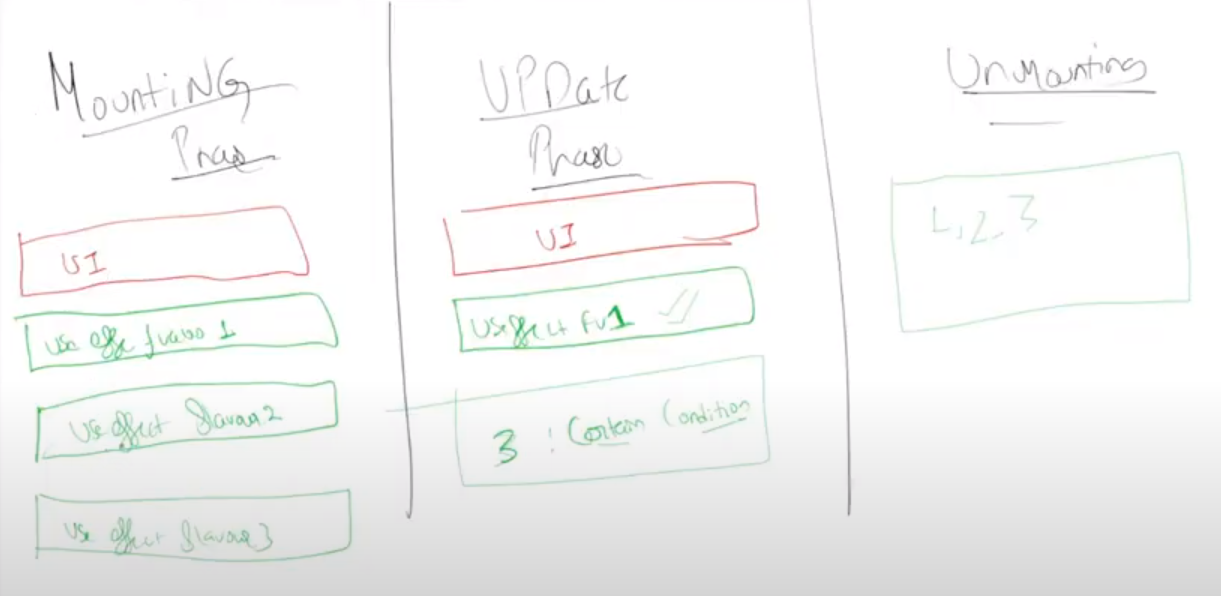 MountiNG
Phase
UI
use effe flavoo 1
Use effect flavour 2
Use effect flavour 3
UPDate
Phase
UI
Useffect Fv1
3 : Certain Condition
UnMounting
1, 2, 3